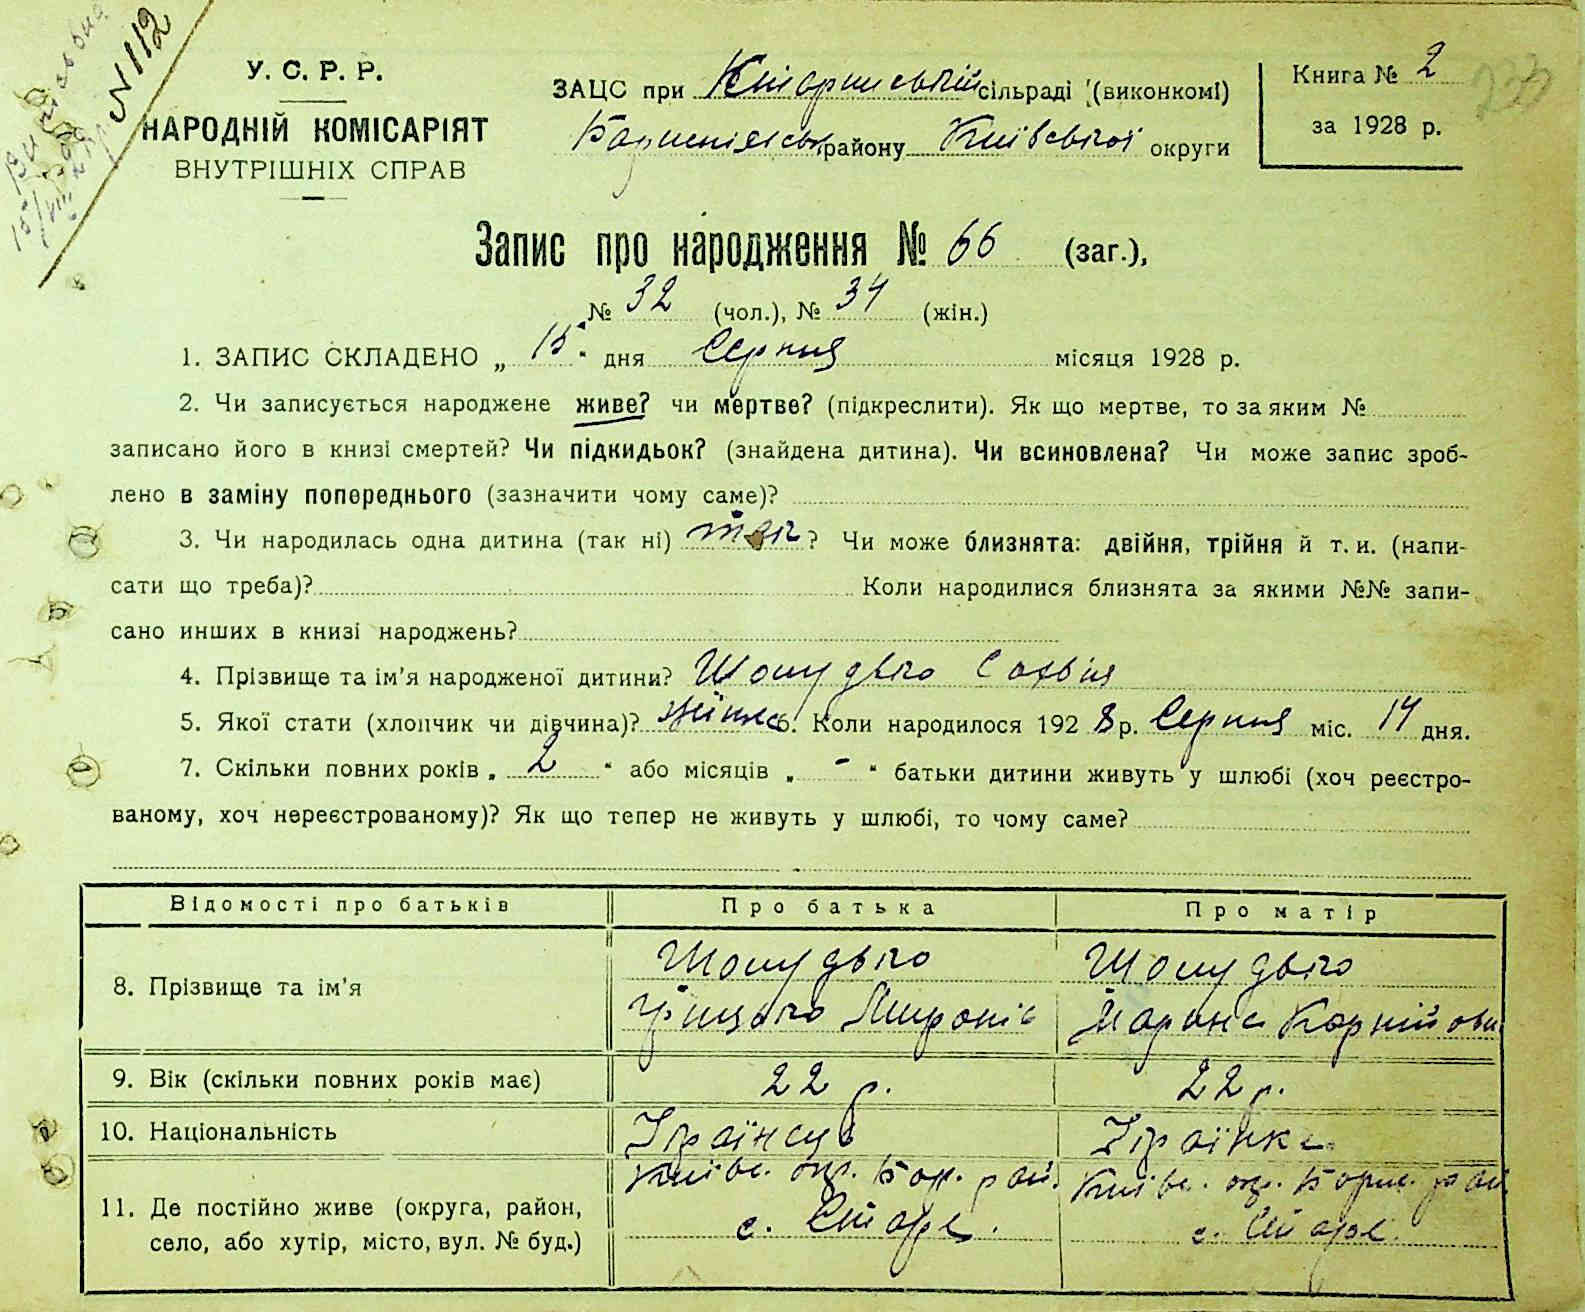 N 112
У. С. Р. Р.
НАРОДНІЙ КОМІСАРІЯТ
ВНУТРІШНІХ СПРАВ
ЗАЦС при Старинській сільраді (виконкомі)
району Київської округи
Книга № 2
за 1928 р.
233
Запис про народження № 66 (заг.),
№ 32 (чол.), № 34 (жін.)
1. ЗАПИС СКЛАДЕНО „ 15 " дня Серпня місяця 1928 р.
2. Чи записується народжене живе? чи мертве? (підкреслити). Як що мертве, то за яким №
записано його в книзі смертей? Чи підкидьок? (знайдена дитина). Чи всиновлена? Чи може запис зроб-
лено в заміну попереднього (зазначити чому саме)?
3. Чи народилась одна дитина (так ні) так ? Чи може близнята: двійня, трійня й т. и. (напи-
сати що треба)? Коли народилися близнята за якими №№ запи-
сано инших в книзі народжень?
4. Прізвище та ім'я народженої дитини? Шолудько Софія
5. Якої стати (хлопчик чи дівчина)? жіноч 6. Коли народилося 1928 р. Серпня міс. 14 дня.
7. Скільки повних років „ 2 " або місяців „ - " батьки дитини живуть у шлюбі (хоч реєстро-
ваному, хоч нереєстрованому)? Як що тепер не живуть у шлюбі, то чому саме?
Відомості про батьків Про батька Про матір
8. Прізвище та ім'я Шолудько Шолудько
Грицько Миронів Марина Корнійовн
9. Вік (скільки повних років має) 22 р. 22 р.
10. Національність Українець Українка
11. Де постійно живе (округа, район, Київс. окр. Бор. рай. Київс. окр. Борис. рай.
село, або хутір, місто, вул. № буд.) с. Старе. с. Старе.